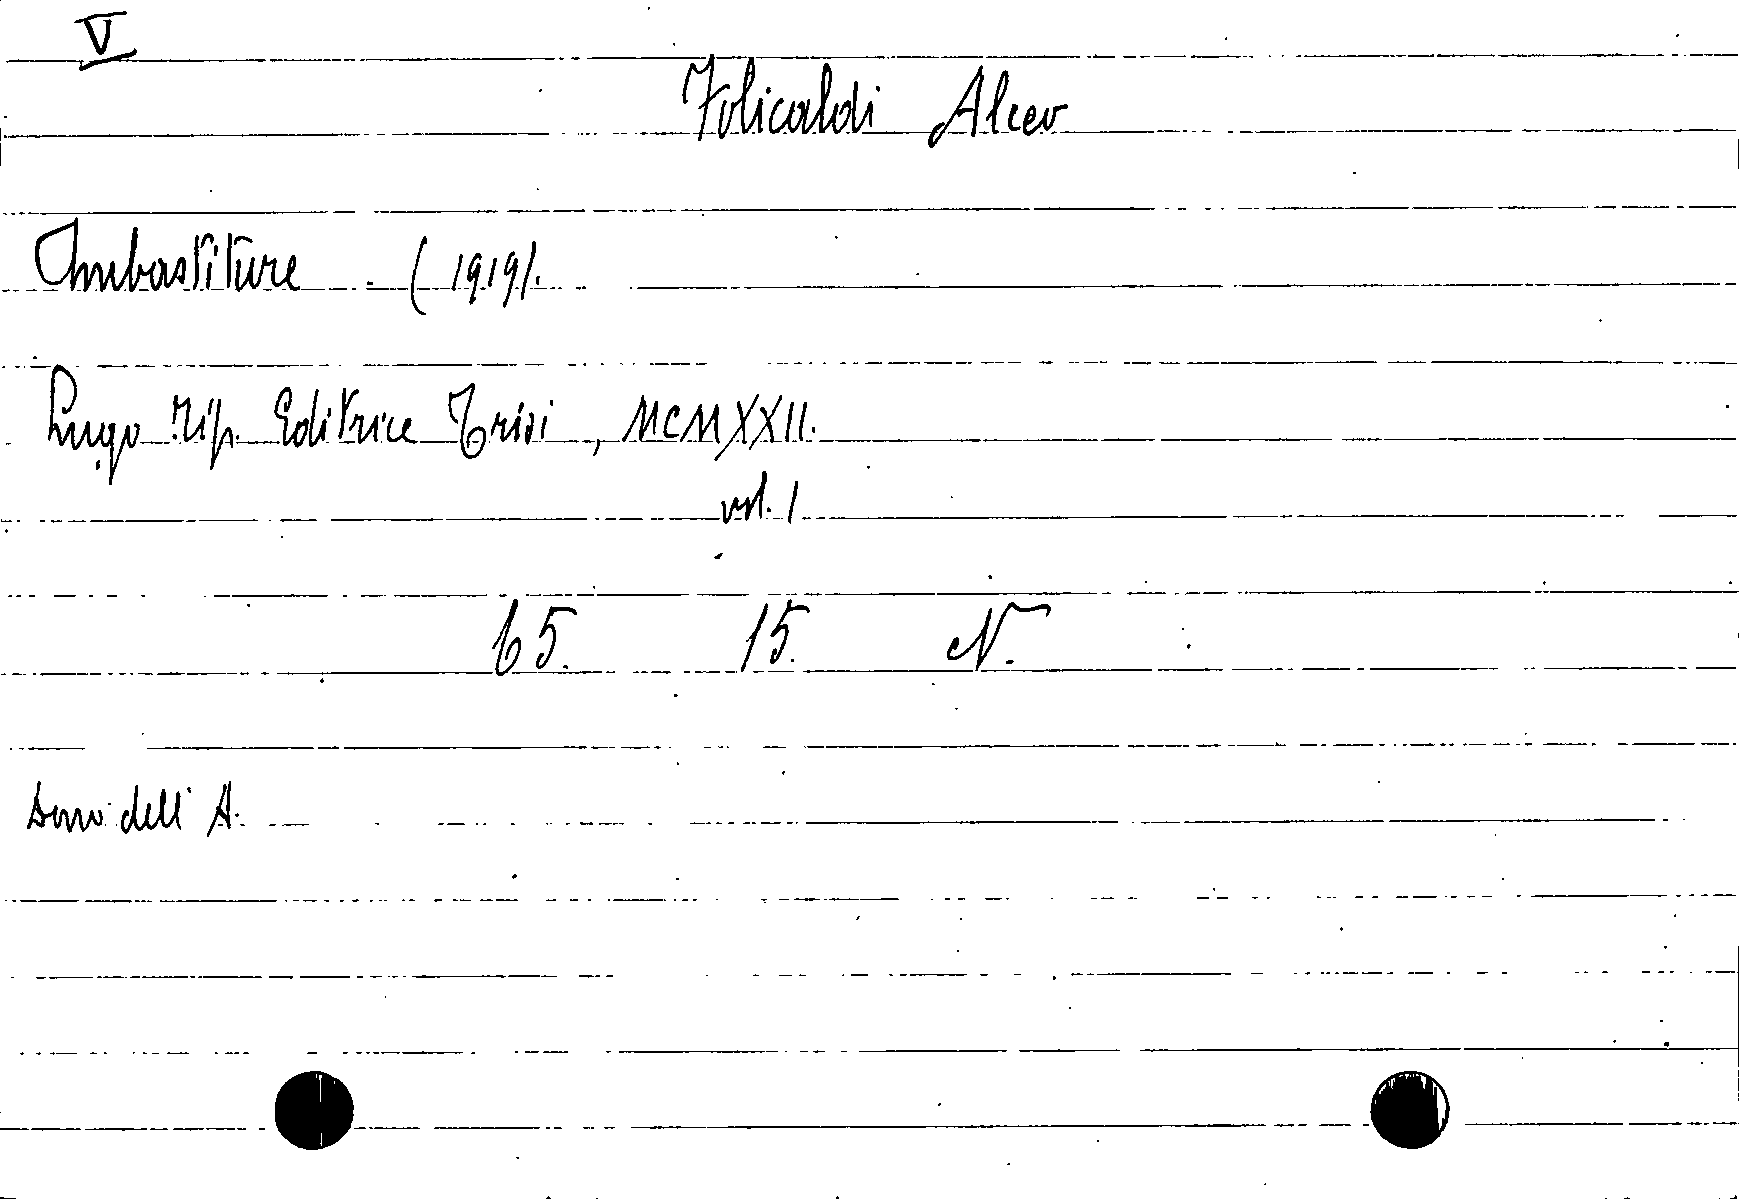 V
Folicaldi Alceo
Imbastiture (1919).
Lugo Tip. Editrice Trisi, MCMXXII.
vol. 1
65. 15. N.
dono dell'A.